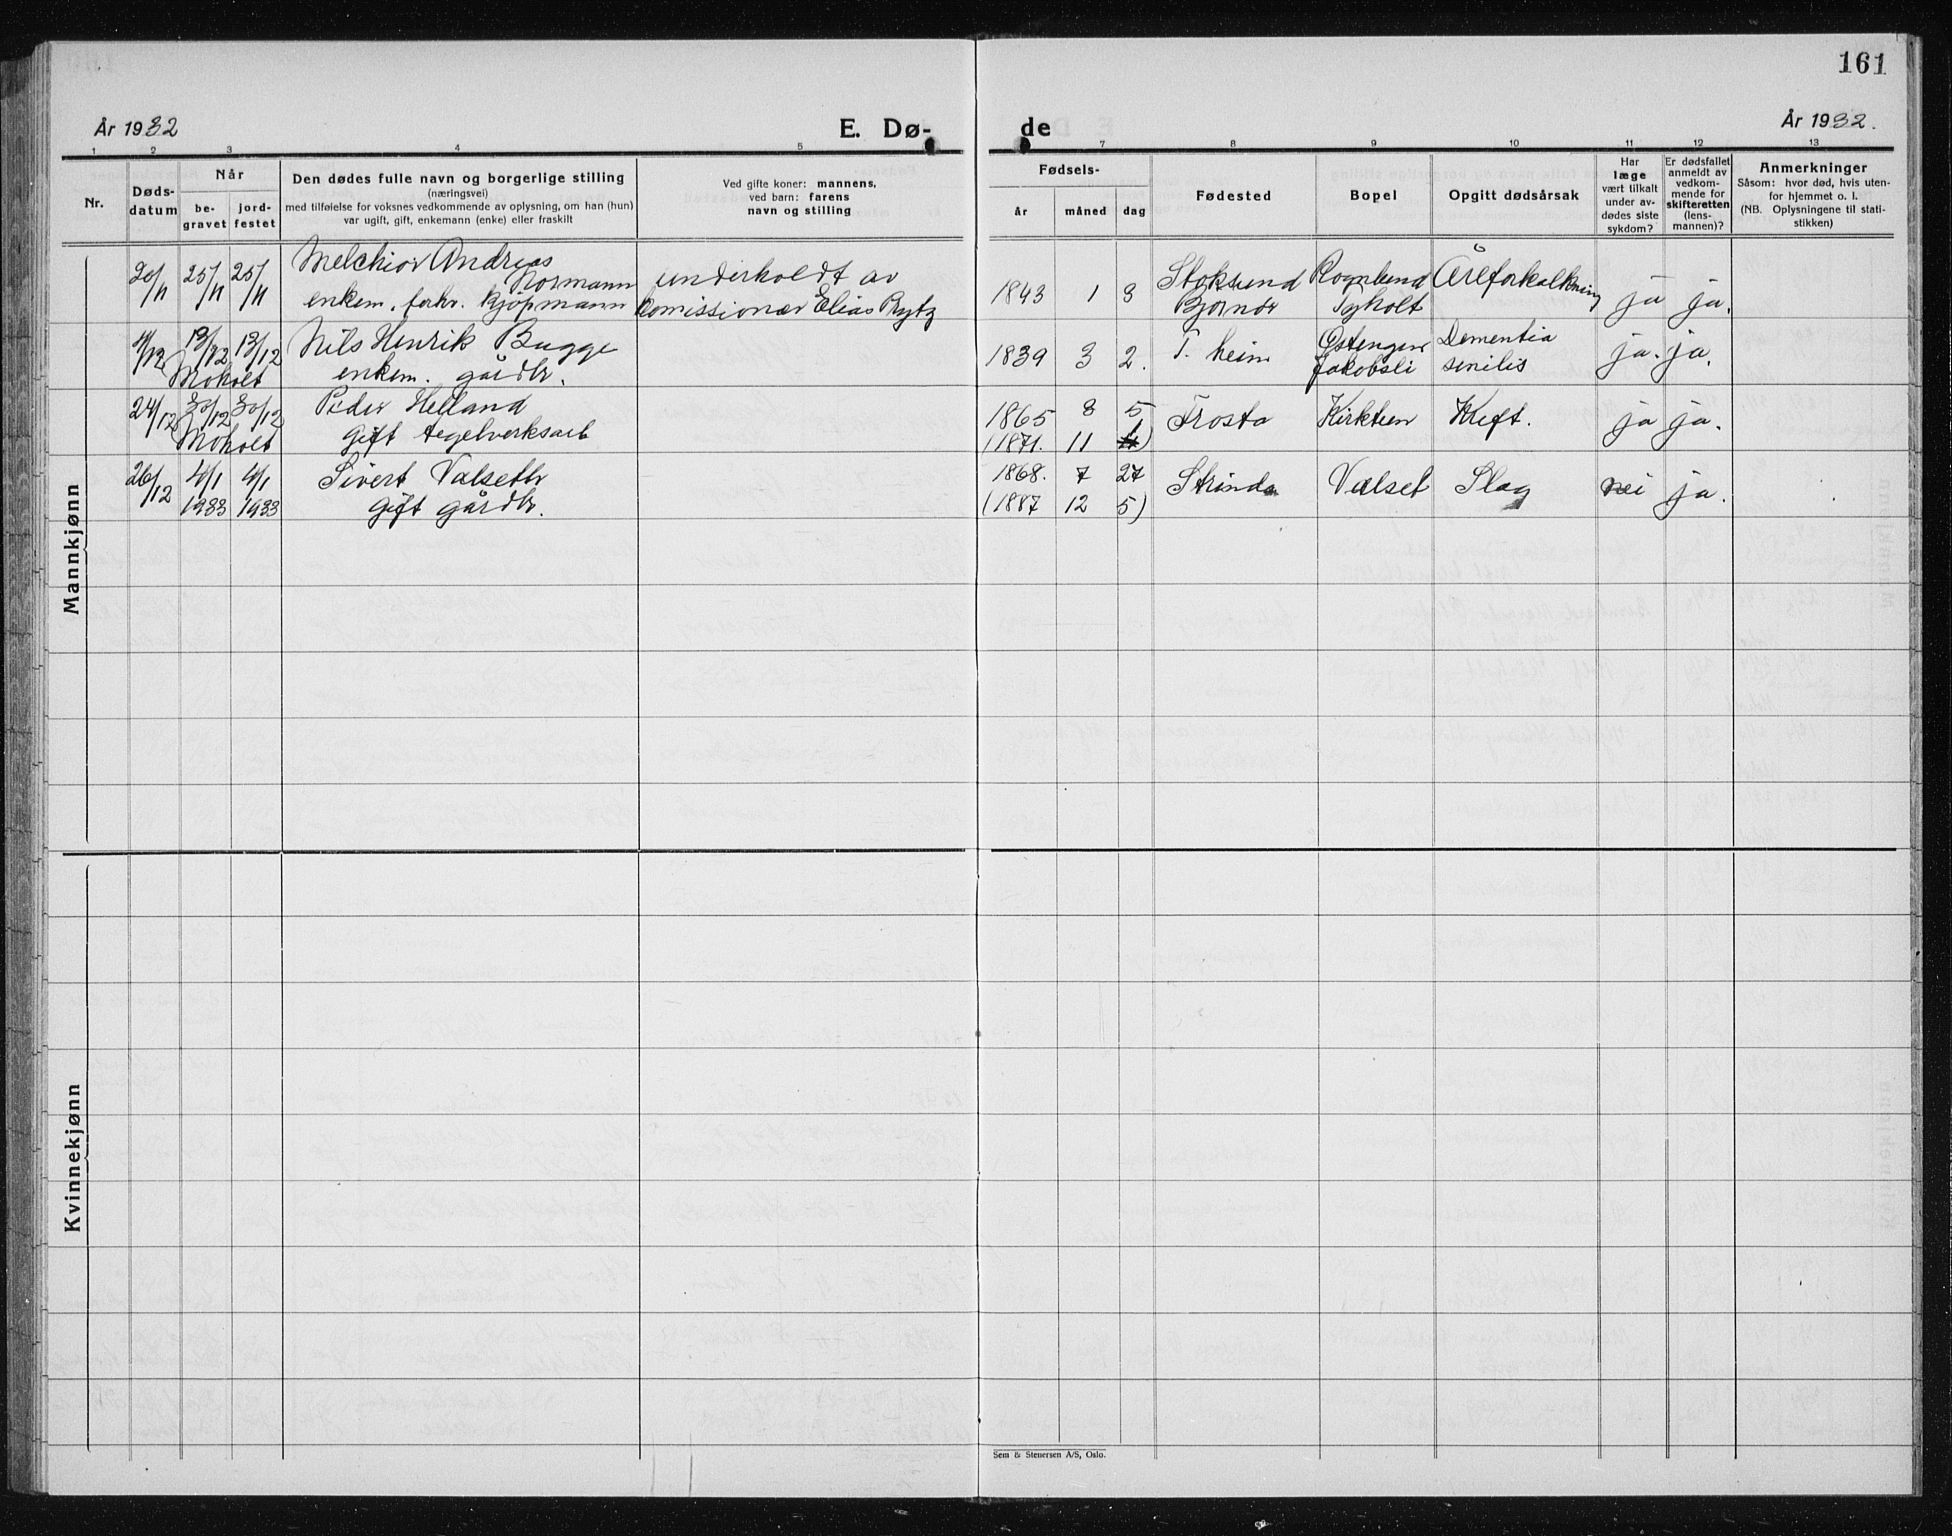 161
År 1932
E. Dø-
de
År 1932.
1 2 3 4 5 7 8 9 10 11 12 13
Nr.
Døds-
datum
Når
be-
gravet
jord-
festet
Den dødes fulle navn og borgerlige stilling
(næringsvei)
med tilføielse for voksnes vedkommende av oplysning, om han (hun)
var ugift, gift, enkemann (enke) eller fraskilt
Ved gifte koner: mannens,
ved barn: farens
navn og stilling
Fødsels-
år måned dag
Fødested
Bopel
Opgitt dødsårsak
Har
læge
vært tilkalt
under av-
dødes siste
sykdom?
Er dødsfallet
anmeldt av
vedkom-
mende for
skifteretten
(lens-
mannen)?
Anmerkninger
Såsom: hvor død, hvis uten-
for hjemmet o. l.
(NB. Oplysningene til stati-
stikken)
Mannkjønn
20/11 25/11 25/11 Melchior Andreas
Normann
enkem. forhv. kjøpmann
underholdt av
komissionær Elias Rytz
1843 1 3 Stoksund
Bjørnør
Rognlund
Tyholt
Åreforkalkning ja ja.
11/12 13/12 13/12 Nils Henrik Bugge
Moholt enkem. gårdbr.
1839 3 2. T.heim Østengen
Jakobsli
Dementia
senilis
ja. ja.
24/12 30/12 30/12 Peder Helland
Moholt gift teglverksarb
1865 8 5 Frosta Kirksten Kreft. ja ja.
(1871. 11 1)
26/12 4/1 4/1 Sivert Valseth
1933 1933 gift gårdbr.
1868. 7 27 Strinda Valset Slag nei ja.
(1887 12 5)
Kvinnekjønn
Sem & Stenersen A/S, Oslo.